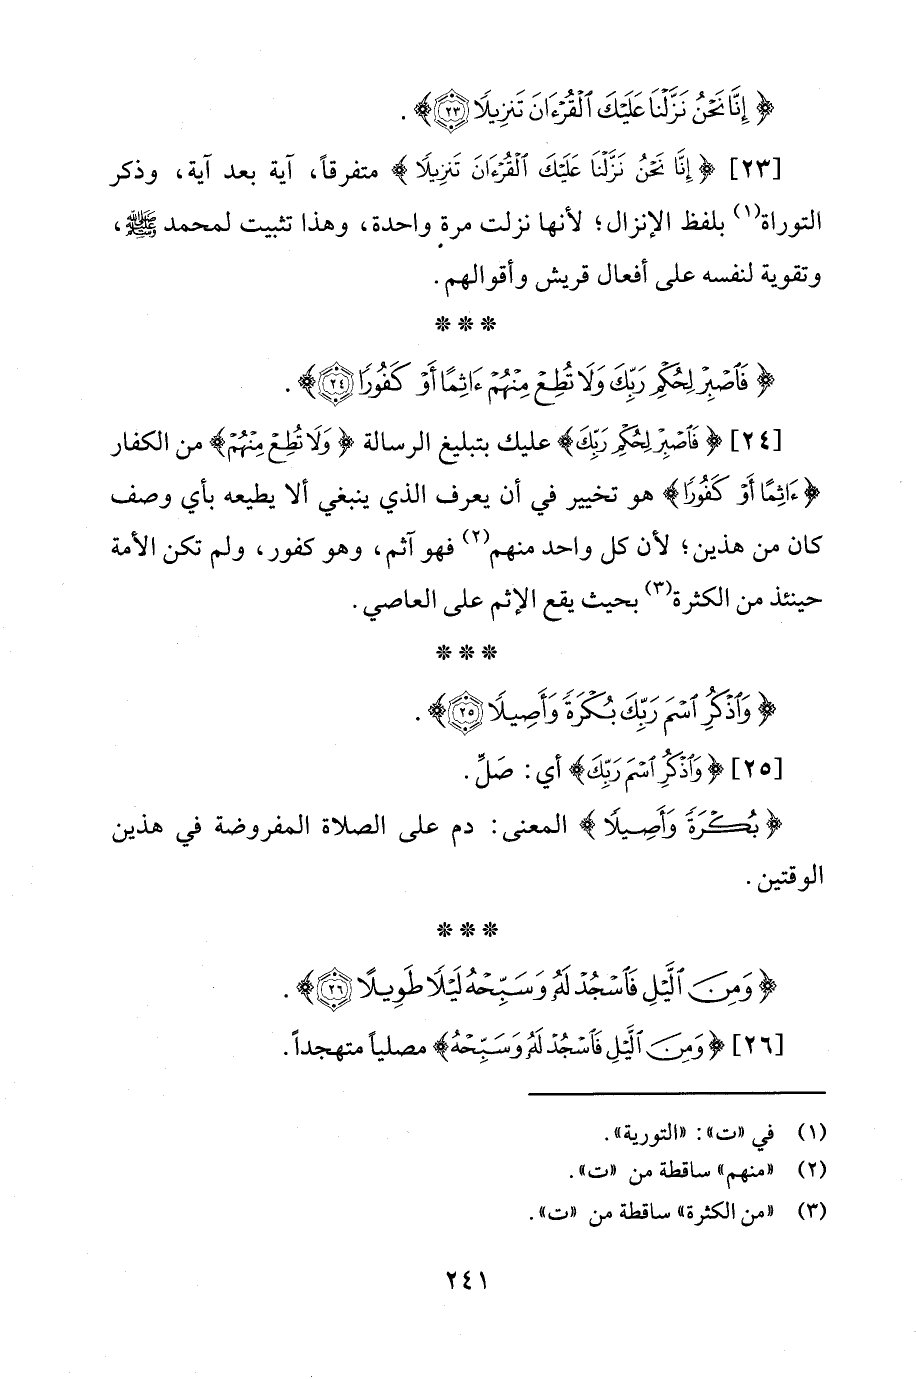 ﴿ إِنَّا نَحْنُ نَزَّلْنَا عَلَيْكَ ٱلْقُرْءَانَ تَنزِيلًا ٢٣﴾ .
[٢٣] ﴿ إِنَّا نَحْنُ نَزَّلْنَا عَلَيْكَ ٱلْقُرْءَانَ تَنزِيلًا ﴾ متفرقاً، آية بعد آية، وذكر
التوراة(١) بلفظ الإنزال؛ لأنها نزلت مرة واحدة، وهذا تثبيت لمحمد ﷺ،
وتقوية لنفسه على أفعال قريش وأقوالهم.
* * *
﴿ فَٱصْبِرْ لِحُكْمِ رَبِّكَ وَلَا تُطِعْ مِنْهُمْ ءَاثِمًا أَوْ كَفُورًا ٢٤﴾ .
[٢٤] ﴿ فَٱصْبِرْ لِحُكْمِ رَبِّكَ﴾ عليك بتبليغ الرسالة ﴿ وَلَا تُطِعْ مِنْهُمْ﴾ من الكفار
﴿ ءَاثِمًا أَوْ كَفُورًا﴾ هو تخيير في أن يعرف الذي ينبغي ألا يطيعه بأي وصف
كان من هذين؛ لأن كل واحد منهم(٢) فهو آثم، وهو كفور، ولم تكن الأمة
حينئذ من الكثرة(٣) بحيث يقع الإثم على العاصي.
* * *
﴿ وَٱذْكُرِ ٱسْمَ رَبِّكَ بُكْرَةً وَأَصِيلًا ٢٥﴾ .
[٢٥] ﴿ وَٱذْكُرِ ٱسْمَ رَبِّكَ﴾ أي: صَلِّ.
﴿ بُكْرَةً وَأَصِيلًا ﴾ المعنى: دم على الصلاة المفروضة في هذين
الوقتين.
* * *
﴿ وَمِنَ ٱلَّيْلِ فَٱسْجُدْ لَهُۥ وَسَبِّحْهُ لَيْلًا طَوِيلًا ٢٦﴾ .
[٢٦] ﴿ وَمِنَ ٱلَّيْلِ فَٱسْجُدْ لَهُۥ وَسَبِّحْهُ﴾ مصلياً متهجداً.
(١) في «ت»: «التورية».
(٢) «منهم» ساقطة من «ت».
(٣) «من الكثرة» ساقطة من «ت».
٢٤١